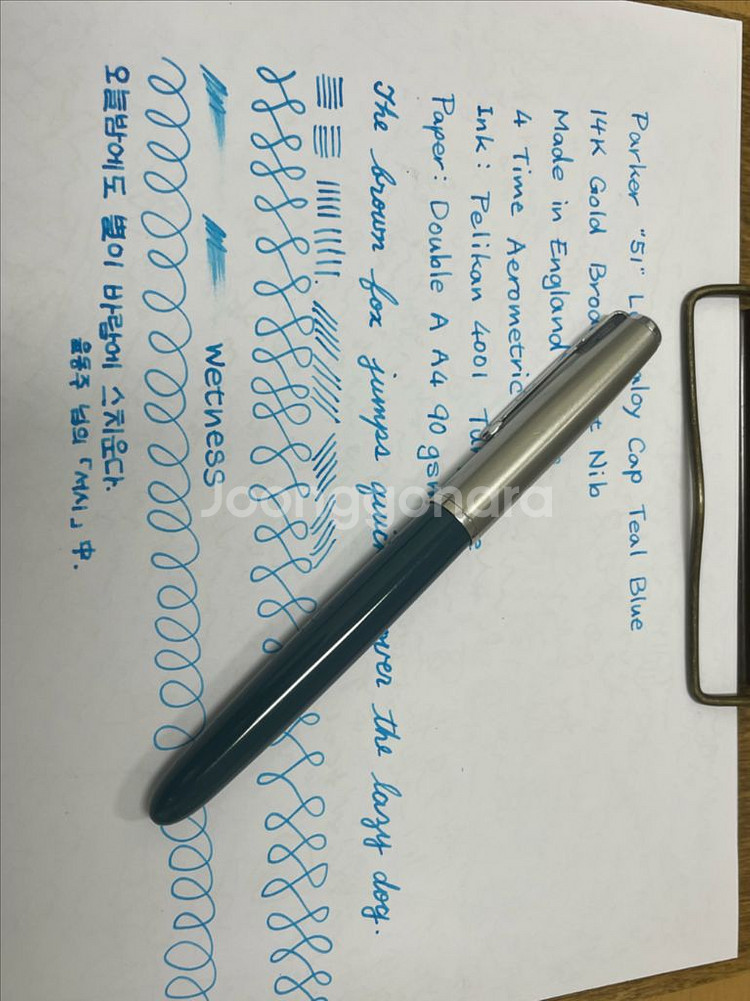 Parker "51" Cap Teal Blue
14K Gold Nib
Made in England
4 Time Aerometric
Ink: Pelikan 4001
Paper: Double A A4 90 gsm
The brown fox jumps over the lazy dog.
Wetness
오늘밤에도 별이 바람에 스치운다.
윤동주 님의 「서시」 中.
Joonggonara